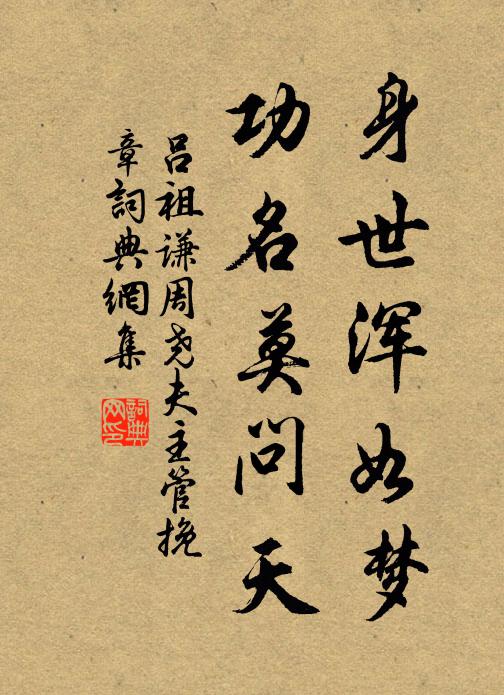 身世浑如梦
功名莫问天
吕祖谦周尧夫主管挽
章詞典網集
詞典网印